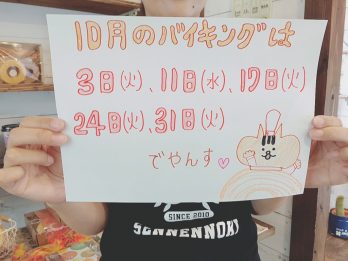 10月のバイキングは
3日(火)、11日(水)、17日(火)
24日(火)、31日(火)
でやんす♡
SINCE 2010